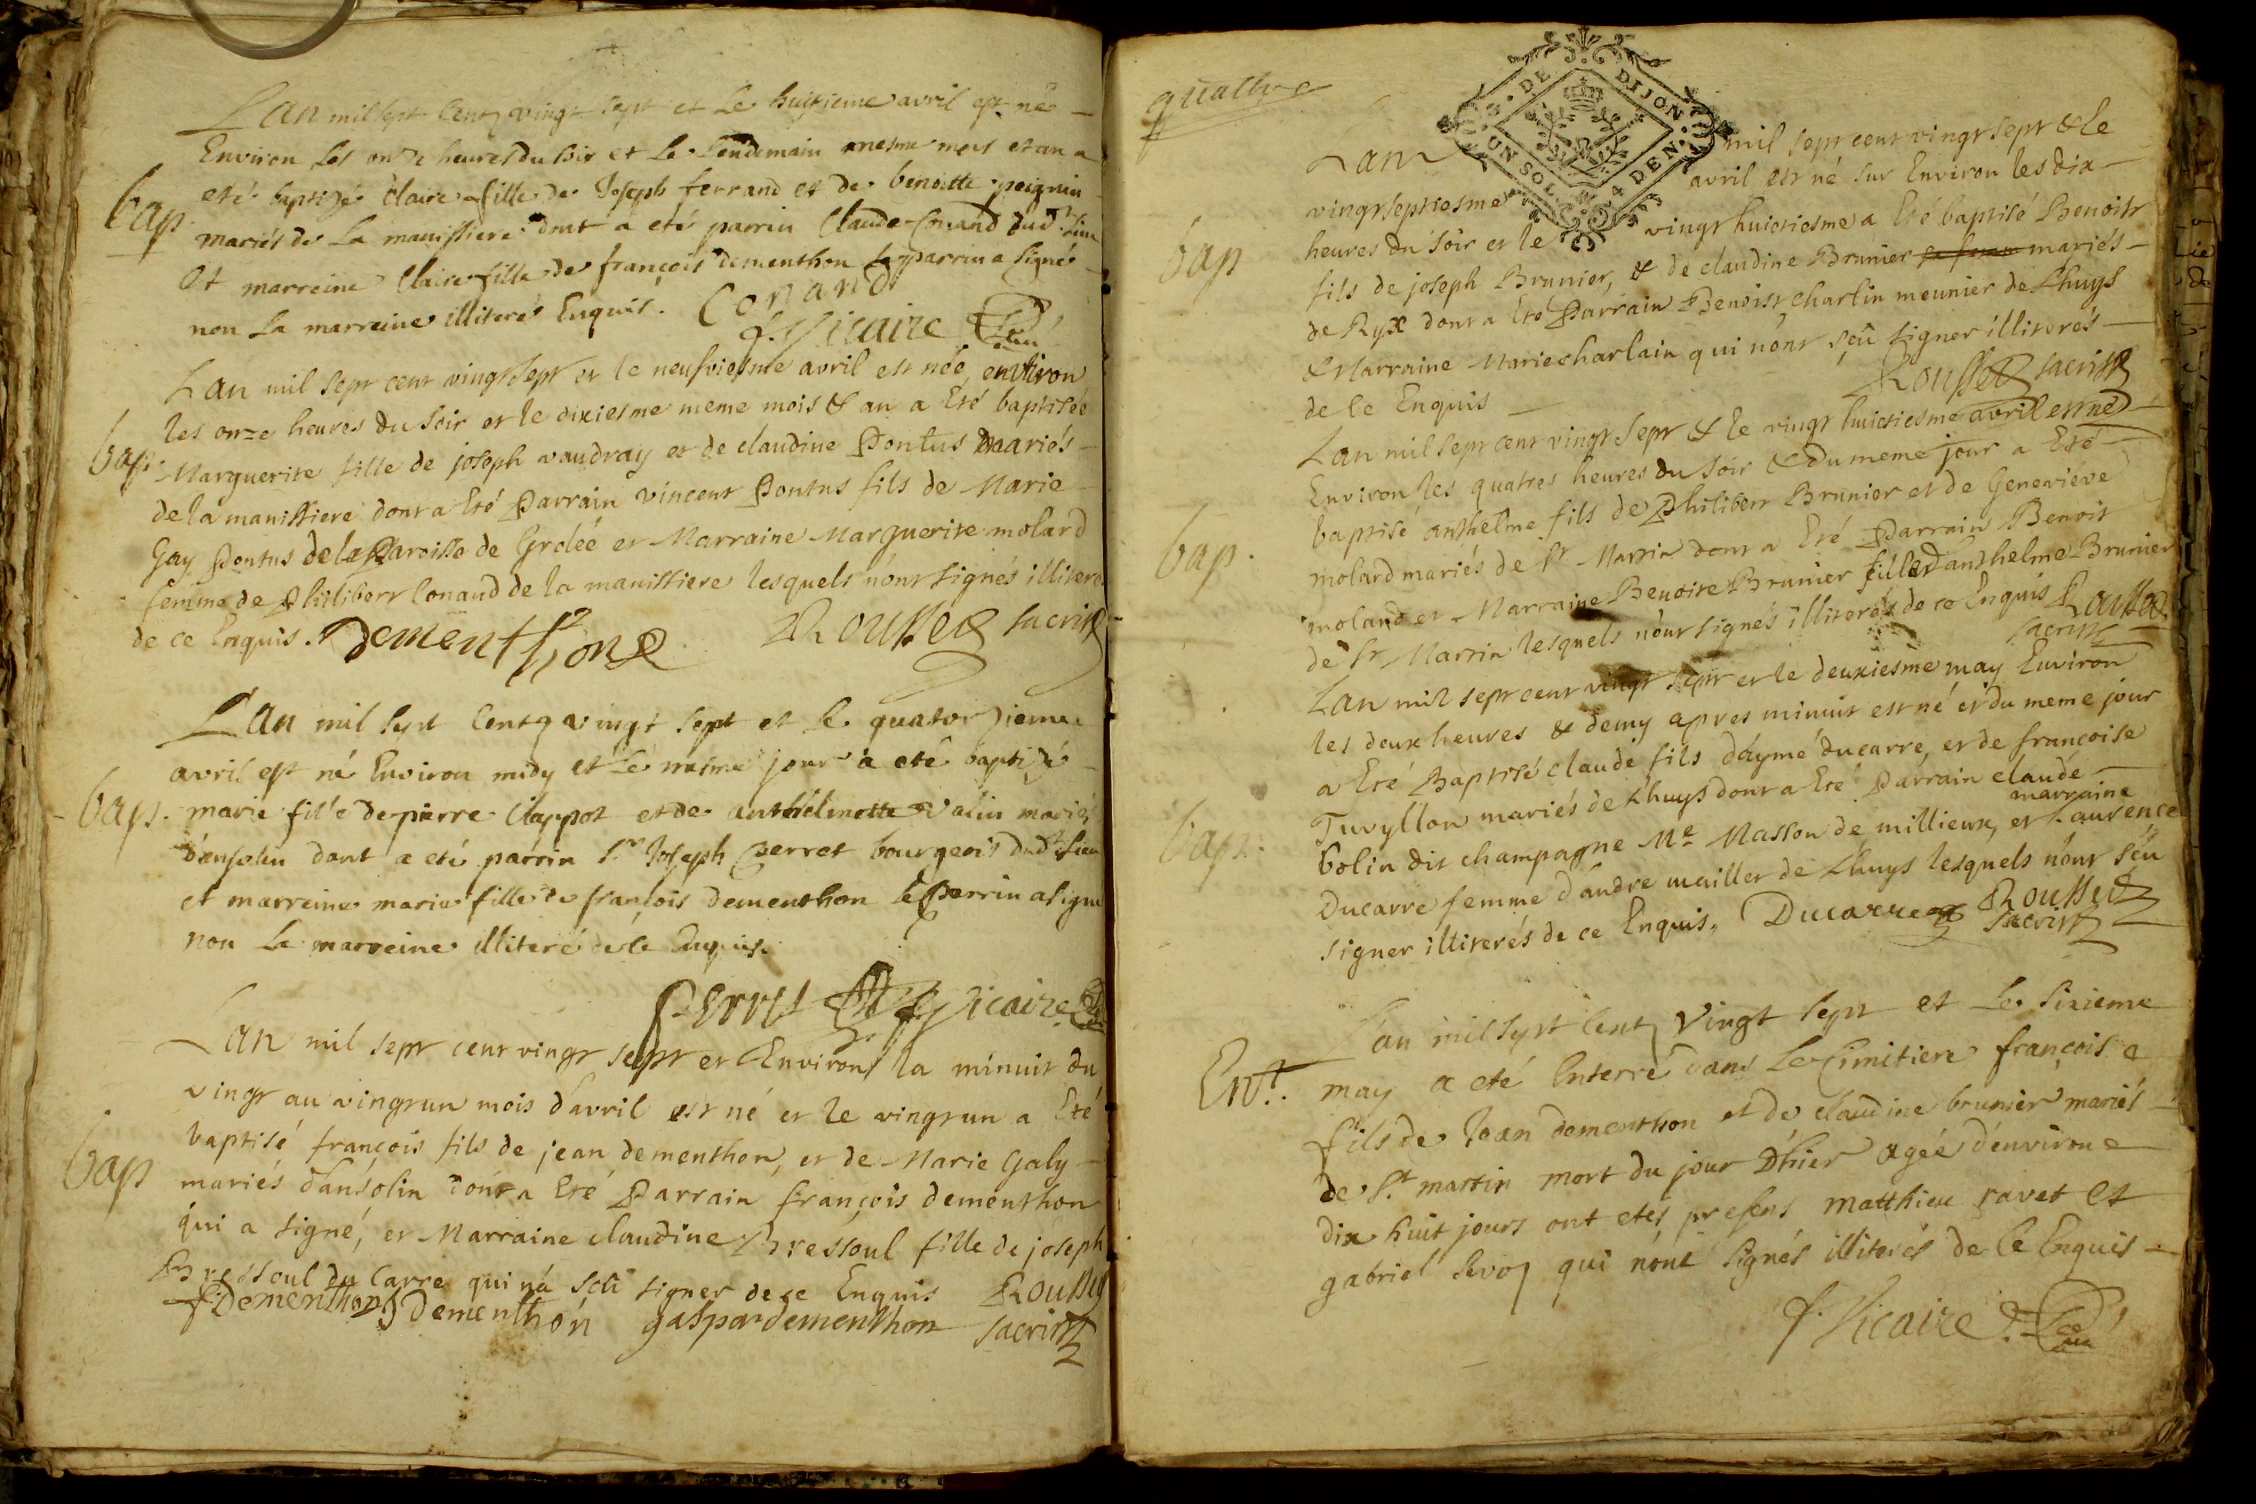 Lan mil sept Cent vingt sept et Le huitieme avril est né
Environ Les onze heures du soir et Le Lendemain mesme mois et an a
bap
eté baptizé Claire fille de Joseph ferrand et de benoitte poignin
mariés de La manissiere dont a eté parrin Claude Conand dud. Lieu
Et marreine Claire fille de françois dementhon Le parrin a signé
non La marreine illiteré Enquis. Conand
f. Vicaire
Lan mil sept cent vingt sept et le neufviesme avril est née, environ
les onze heures du soir et le dixiesme meme mois & an a Eté baptisée
bap.
Marguerite fille de joseph vaudray et de claudine Pontus mariés
de la manissiere dont a Eté Parrain vincent Pontus fils de Marie
Gay Pontus de la Paroisse de Grolée et Marraine Marguerite molard
femme de Philibert Conand de la manissiere lesquels n'ont signés illiterés
de ce Enquis. Dementhon Rousset sacrist
Lan mil sept Cent vingt sept et Le quatorzieme
avril est né Environ midy et Le mesme jour a eté baptizé
bap.
marie fille de pierre Clappot et de anthelmette valin mariés
d'ansolin dont a eté parrin Sr Joseph Perret bourgeois dudt Lieu
et marreine marie fille de françois dementhon Le Perrin a signé
non La marreine illiteré de Ce Enquis.
Perret f. Vicaire
Lan mil sept cent vingt sept et Environ la minuit du
vingt au vingt un mois d'avril est né et le vingt un a Eté
bap
baptisé françois fils de jean dementhon, et de Marie Galy
mariés d'ansolin dont a Eté Parrain françois dementhon
qui a signé, et Marraine claudine Bressoul fille de joseph
Bressoul du Carre qui n'a sçû signer de ce Enquis Rousset
f. Dementhon Dementhon gaspar dementhon sacrist
quattre
G. DE DIJON. UN SOL 4 DEN.
Lan mil sept cent vingt sept & le
vingt septiesme avril est né sur Environ les dix
bap
heures du soir et le vingt huictiesme a Eté baptisé Benoist
fils de joseph Brunier, & de claudine Brunier mariés
de Ryx dont a Eté Parrain Benoist Charlin meunier de Lhuys
& Marraine Marie charlain qui n'ont sçû signer illiterés
de ce Enquis Rousset sacrist
Lan mil sept cent vingt sept & le vingt huictiesme avril est né
Environ les quatres heures du soir & du meme jour a Eté
bap.
baptisé anthelme fils de Philibert Brunier et de Geneviéve
molard mariés de St Martin dont a Eté Parrain Benoit
molard et Marraine Benoite Brunier fille d'anthelme Brunier
de St Martin lesquels n'ont signés illiterés de ce Enquis Rousset
sacrist
Lan mil sept cent vingt sept et le deuxiesme may Environ
les deux heures & demy apres minuit est né et du meme jour
a Eté Baptisé claude fils d'aymé ducarre, et de françoise
bap.
Tuvyllon mariés de Lhuys dont a Eté Parrain claude
marraine
bolin dit champagne Me Masson de millieux, et Laurence
Ducarre femme d'andre mailler de Lhuys lesquels n'ont sçu
signer illiterés de ce Enquis, Ducarre Rousset
sacrist
Lan mil sept Cent Vingt sept et Le sixieme
Ent.
may a eté Enterré dans Le Cimitiere françois
fils de Jean dementhon et de claudine brunier mariés
de St martin mort du jour d'hier agée d'environ
dix huit jours ont etés presens matthieu ravet et
gabriel Sevoz qui n'ont signés illiterés de Ce Enquis
f. Vicaire